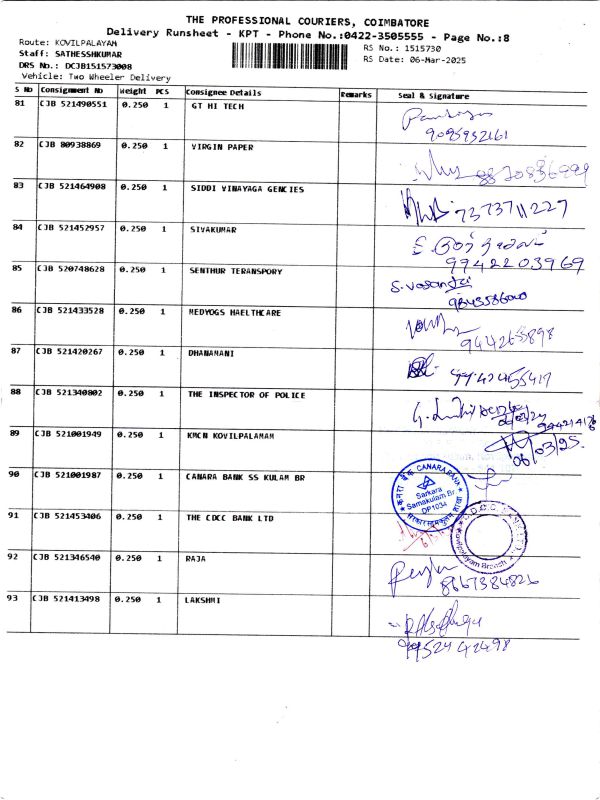 THE PROFESSIONAL COURIERS, COIMBATORE
Delivery Runsheet - KPT - Phone No.:0422-3505555 - Page No.:8
Route: KOVILPALAYAM
RS No.: 1515730
Staff: SATHESSHKUMAR
RS Date: 06-Mar-2025
DRS No.: DCJB151573008
Vehicle: Two Wheeler Delivery
S No Consignment No Weight PCS Consignee Details Remarks Seal & Signature
81 CJB 521490551 0.250 1 GT HI TECH
82 CJB 80938869 0.250 1 VIRGIN PAPER
83 CJB 521464908 0.250 1 SIDDI VINAYAGA GENCIES
7373711227
84 CJB 521452957 0.250 1 SIVAKUMAR
9942203969
85 CJB 520748628 0.250 1 SENTHUR TERANSPORY
S. Vasanthi
86 CJB 521433528 0.250 1 MEDYOGS HAELTHCARE
87 CJB 521420267 0.250 1 DHANAMANI
9942455419
88 CJB 521340802 0.250 1 THE INSPECTOR OF POLICE
89 CJB 521001949 0.250 1 KMCN KOVILPALAMAM
06/03/25
90 CJB 521001987 0.250 1 CANARA BANK SS KULAM BR
CANARA BANK
Sarkara
Samakulam Br.
DP1034
91 CJB 521453406 0.250 1 THE CDCC BANK LTD
92 CJB 521346540 0.250 1 RAJA
8667384826
93 CJB 521413498 0.250 1 LAKSHMI
9952442498